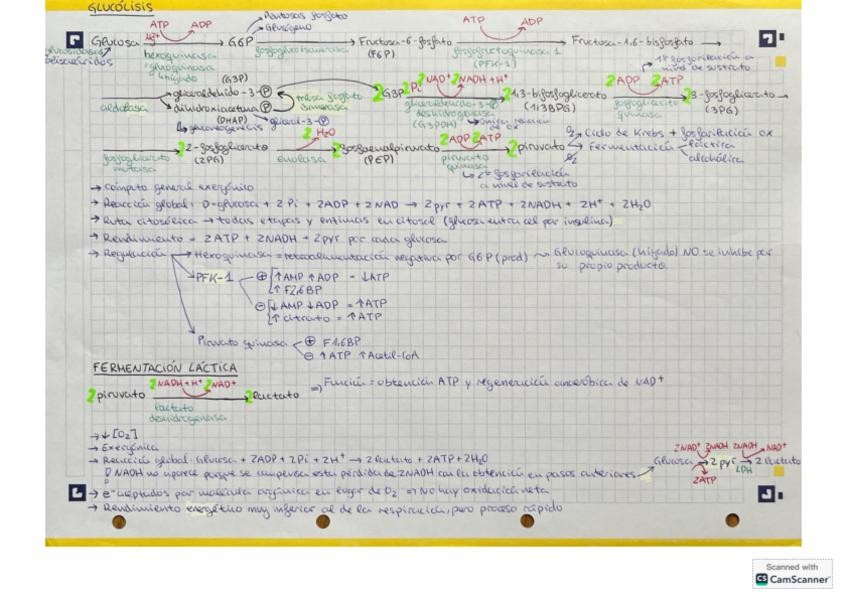 GLUCÓLISIS
ATP ADP → Pentosas fosfato ATP ADP
→ Glucógeno
Glucosa Mg²⁺ → G6P → Fructosa-6-fosfato → Fructosa-1,6-bisfosfato →
hexoquinasa fosfoglucoisomerasa (F6P) fosfofructoquinasa 1
glucoquinasa (PFK-1)
(hígado) 1ª fosforilación a nivel de sustrato
(G3P) 2NAD⁺ 2NADH+H⁺ 2ADP 2ATP
aldolasa → gliceraldehído-3-P triosa fosfato isomerasa 2G3P 2Pi → 2 1,3-bifosfoglicerato → 2 3-fosfoglicerato →
→ dihidroxiacetona-P gliceraldehído-3-P deshidrogenasa (1,3BPG) fosfoglicerato quinasa (3PG)
(DHAP) → glicerol-3-P (G3PDH) → única reacción de ox
↳ gluconeogénesis
2H₂O 2ADP 2ATP O₂ → Ciclo de Krebs + fosforilación ox
→ 2 2-fosfoglicerato → 2 fosfoenolpiruvato → 2 piruvato → Fermentación láctica
fosfoglicerato mutasa (2PG) enolasa (PEP) piruvato quinasa O₂ alcohólica
↳ 2ª fosforilación a nivel de sustrato
→ Cómputo general exergónico
→ Reacción global: D-glucosa + 2Pi + 2ADP + 2NAD → 2pyr + 2ATP + 2NADH + 2H⁺ + 2H₂O
→ Ruta citosólica → todas etapas y enzimas en citosol (glucosa entra cel por insulina)
→ Rendimiento = 2ATP + 2NADH + 2pyr por cada glucosa
→ Regulación → Hexoquinasa = retroalimentación negativa por G6P (prod) ~ Glucoquinasa (hígado) NO se inhibe por
su propio producto
PFK-1 ⊕ ↑AMP ↑ADP - ↓ATP
↑F2,6BP
⊖ ↓AMP ↓ADP = ↑ATP
↑citrato = ↑ATP
Piruvato quinasa ⊕ F1,6BP
⊖ ↑ATP ↑Acetil-CoA
FERMENTACIÓN LÁCTICA
2NADH+H⁺ 2NAD⁺ ⇒ Función = obtención ATP y regeneración anaeróbica de NAD⁺
2piruvato → 2lactato
lactato deshidrogenasa
→ ↓[O₂]
→ Exergónica 2NAD⁺ 2NADH 2NADH → NAD⁺
→ Reacción global: Glucosa + 2ADP + 2Pi + 2H⁺ → 2lactato + 2ATP + 2H₂O Glucosa → 2pyr → 2lactato
NADH no aparece porque se compensa esta pérdida de 2NADH con la obtención en pasos anteriores 2ATP LDH
→ e⁻ aceptados por molécula orgánica en lugar de O₂ ⇒ NO hay oxidación neta
→ Rendimiento energético muy inferior al de la respiración, pero proceso rápido
Scanned with
CS CamScanner